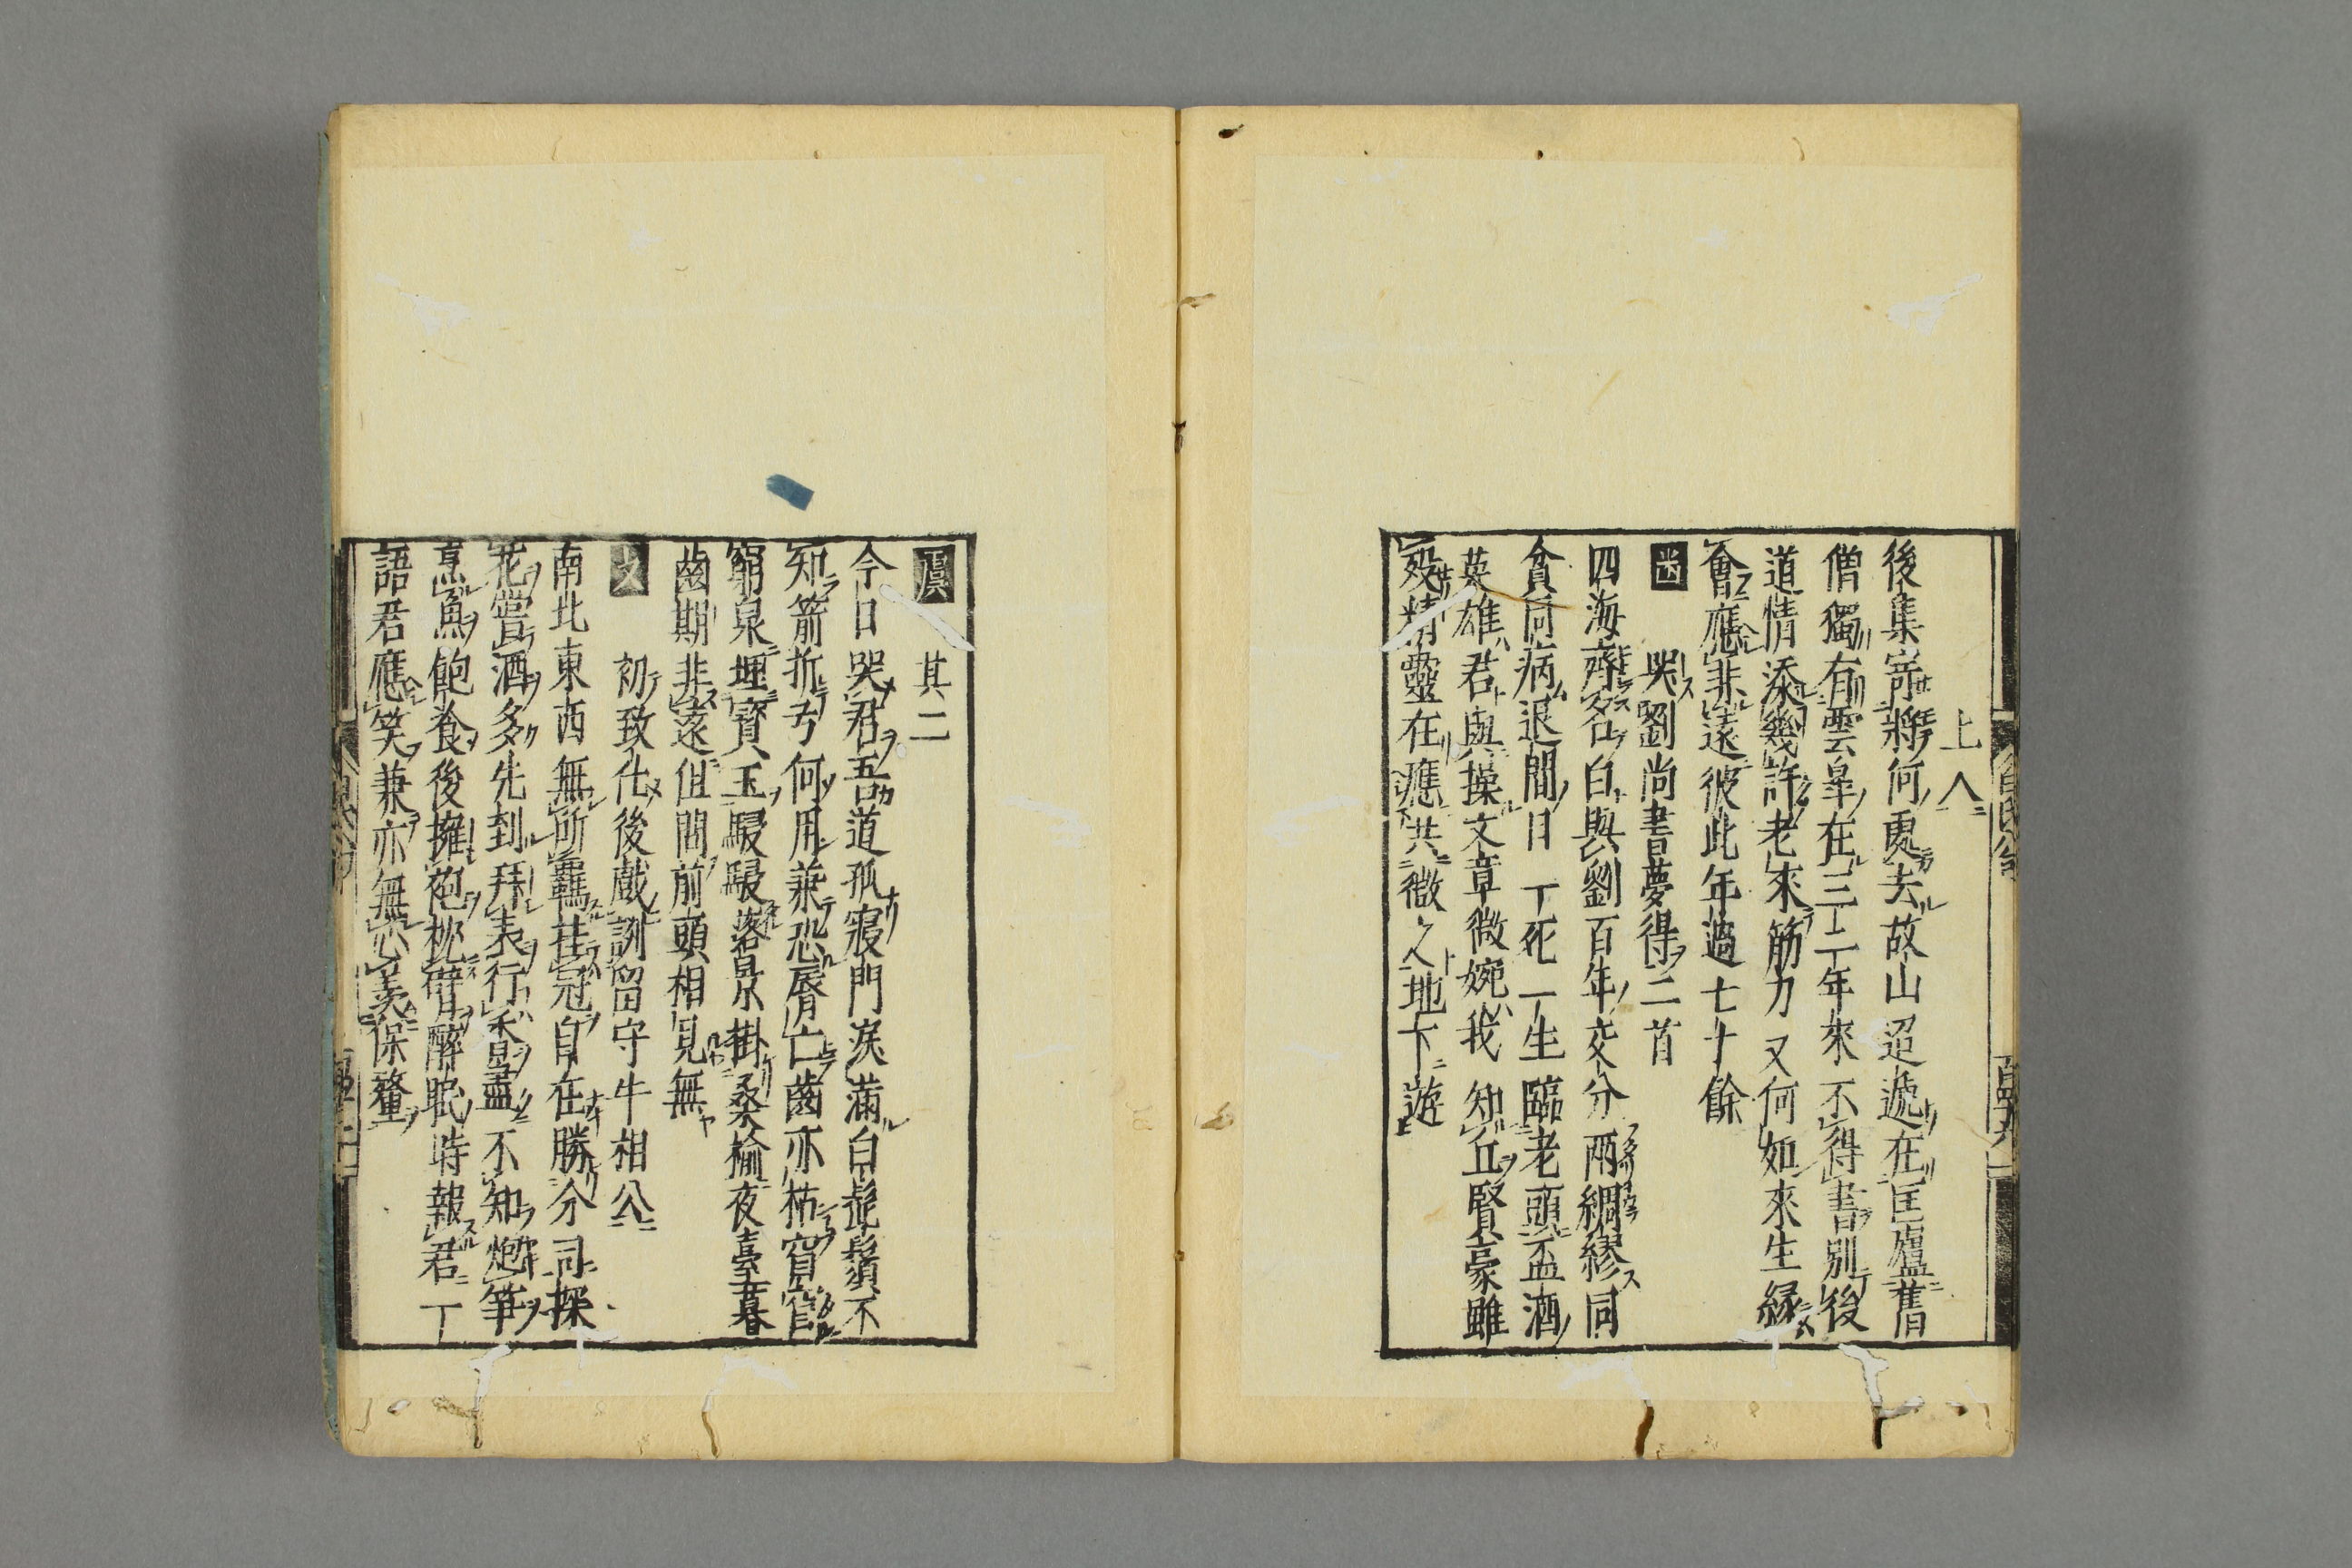 上人
後集寄將何處去故山迢遞在匡廬舊
僧獨有雲皐在三二年來不得書別後
道情添幾許老來筋力又何如來生緣
會應非遠彼此年過七十餘
尤 哭劉尚書夢得二首
四海齊名白與劉百年交分兩綢繆同
貧同病退間日一死一生臨老頭盃酒
英雄君與操文章微婉我知丘賢豪雖
歿精靈在應共微之地下遊
虞 其二
今日哭君吾道孤寢門淚滿白髭鬚不
知箭折弓何用兼恐脣亡齒亦枯窅窅
窮泉埋寳玉駸駸落景掛桑榆夜臺暮
齒期非遠但問前頭相見無
文 初致仕後戲詶留守牛相公
南北東西無所羈挂冠自在勝分司探
花嘗酒多先到拜表行香盡不知炮笋
烹魚飽飡後擁袍枕臂醉眠時報君一
語君應笑兼亦無心羨保釐